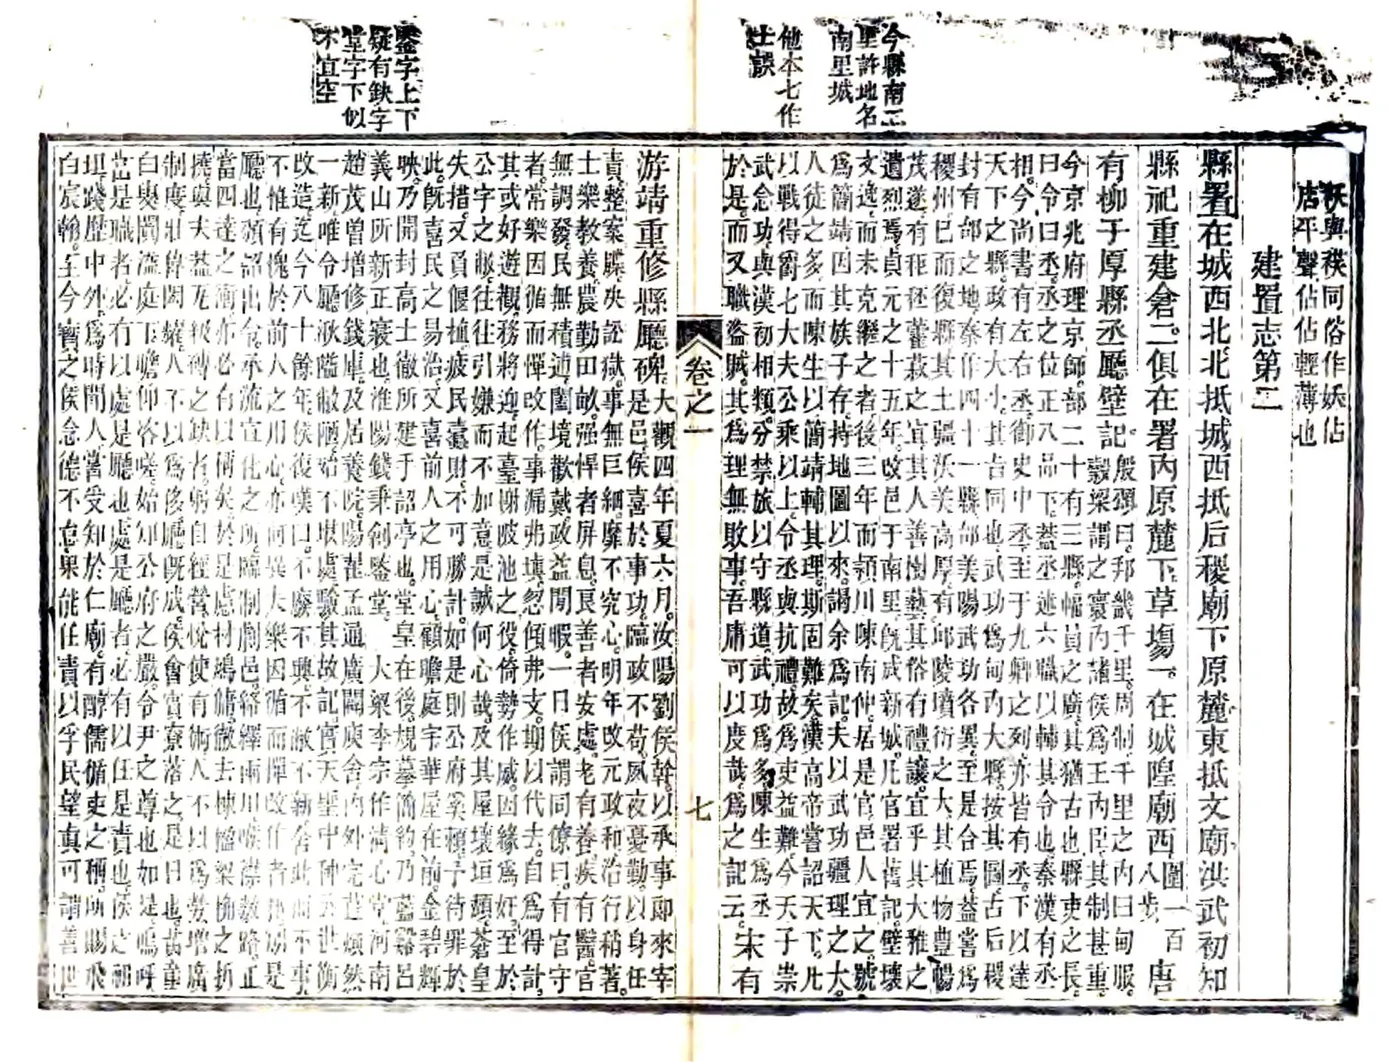 今縣南二
里許地名
南里城
他本七作
士誤
鑒字上下
疑有鈌字
堂字下似
不宜空
秩與䄂同俗作妖佔
店平聲佔佔輕薄也
建置志第二
縣署在城西北北抵城西抵后稷廟下原麓東抵文廟洪武初知
縣祀重建倉二俱在署內原麓下草塲一在城隍廟西 圍一百八步 唐
有柳子厚縣丞廳壁記 殷頊曰邦畿千里周制千里之內曰甸服
穀梁謂之寰內諸侯爲王內臣其制甚重
今京兆府理京師部二十有三縣幅員之廣其猶古也縣吏之長
曰令曰丞丞之位正八品下蓋丞述六職以輔其令也秦漢有丞
相今尚書有左右丞御史中丞至于九卿之列亦皆有丞下以達
天下之縣政有大小其吉同也武功爲甸內大縣按其圖古后稷
封有邰之地秦作四十一縣邰美陽武功各異至是合焉益當爲
稷州已而復縣其土疆沃美高厚有邱陵墳衍之大其植物豊暢
茂遂有秬秠藿菽之宜其人善樹藝其俗有禮讓宜乎其大雅之
遺烈焉貞元之十五年改邑于南里旣成新城凡官署舊記壁壞
文逸而未克繼之者後三年而潁川陳南仲居是官邑人宜之號
爲簡靖因其族子存持地圖以來謁余爲記夫以武功疆理之大
人徒之多而陳生以簡靖輔其理斯固難矣漢高帝嘗詔天下凡
以戰得爵七大夫公乘以上令丞與抗禮故爲吏益難今天子崇
武念功與漢初相類分禁旅以守縣道武功爲多陳生爲丞
於是而又職盜賊其爲理無敗事吾庸可以度哉爲之記云 宋有
卷之一
七
游靖重修縣廳碑 大觀四年夏六月汝陽劉侯幹以承事郎來宰
是邑侯喜於事功臨政不苟夙夜憂勤以身任
責整案牘决訟獄事無巨細靡不究心明年改元政和治行稍著
士樂教養農勤田畝强悍者屏息良善者安處老有養疾有醫官
無調發民無積逋闔境歡戴政益閒暇一日侯謂同僚曰有官守
者常樂因循而憚改作事漏弗塡忽傾弗支期以代去自爲得計
其或好遊觀務將迎起臺榭陂池之役倚勢作威因緣爲奸至於
公宇之敝往往引嫌而不加意是誠何心哉及其屋壞垣頹蒼皇
失措又負偃植疲民蠹財不可勝計如是則公府奚賴予待罪於
此旣喜民之易治又喜前人之用心顧瞻庭宇華屋在前金碧輝
映乃開封高士徹所建于詔亭也堂皇在後規摹簡約乃藍谿呂
義山所新正寢也淮陽錢秉創鑒堂 大梁李宗作淸心堂河南
趙茂曾增修錢庫及居養院陽翟孟通廣闢庾舍內外完葺頗然
一新唯令廳湫隘敝陋殆不堪處驗其故記實天聖中种五世衡
改造迄今八十餘年侯復嘆曰不廢不興不敝不新舍此而不事
不惟有愧於前人之用心亦何異大樂因循而憚改作者
廳也頒詔出令承流宣化之所臨制劇邑絡繹兩川喉襟敎路正
當四達之衝亦必有以稱矣於是慮材鳩傭徹去棟楹梁桷之折
撓與夫蓋瓦級磚之缺者躬自經營悅使有術人不以爲勞增廣
制度壯偉閎耀人不以爲侈廳旣成侯會賓寮落之是日也耆耋
白叟闐溢庭下瞻仰咨嗟始知公府之嚴令尹之尊也如是嗚呼
當是職者必有以處是廳也處是廳者必有以任是責也侯之祖
珵踐歷中外爲時間人當受知於仁廟有醇儒循吏之稱所賜飛
白宸翰至今寳之侯念德不怠果能任責以孚民望眞可謂善世